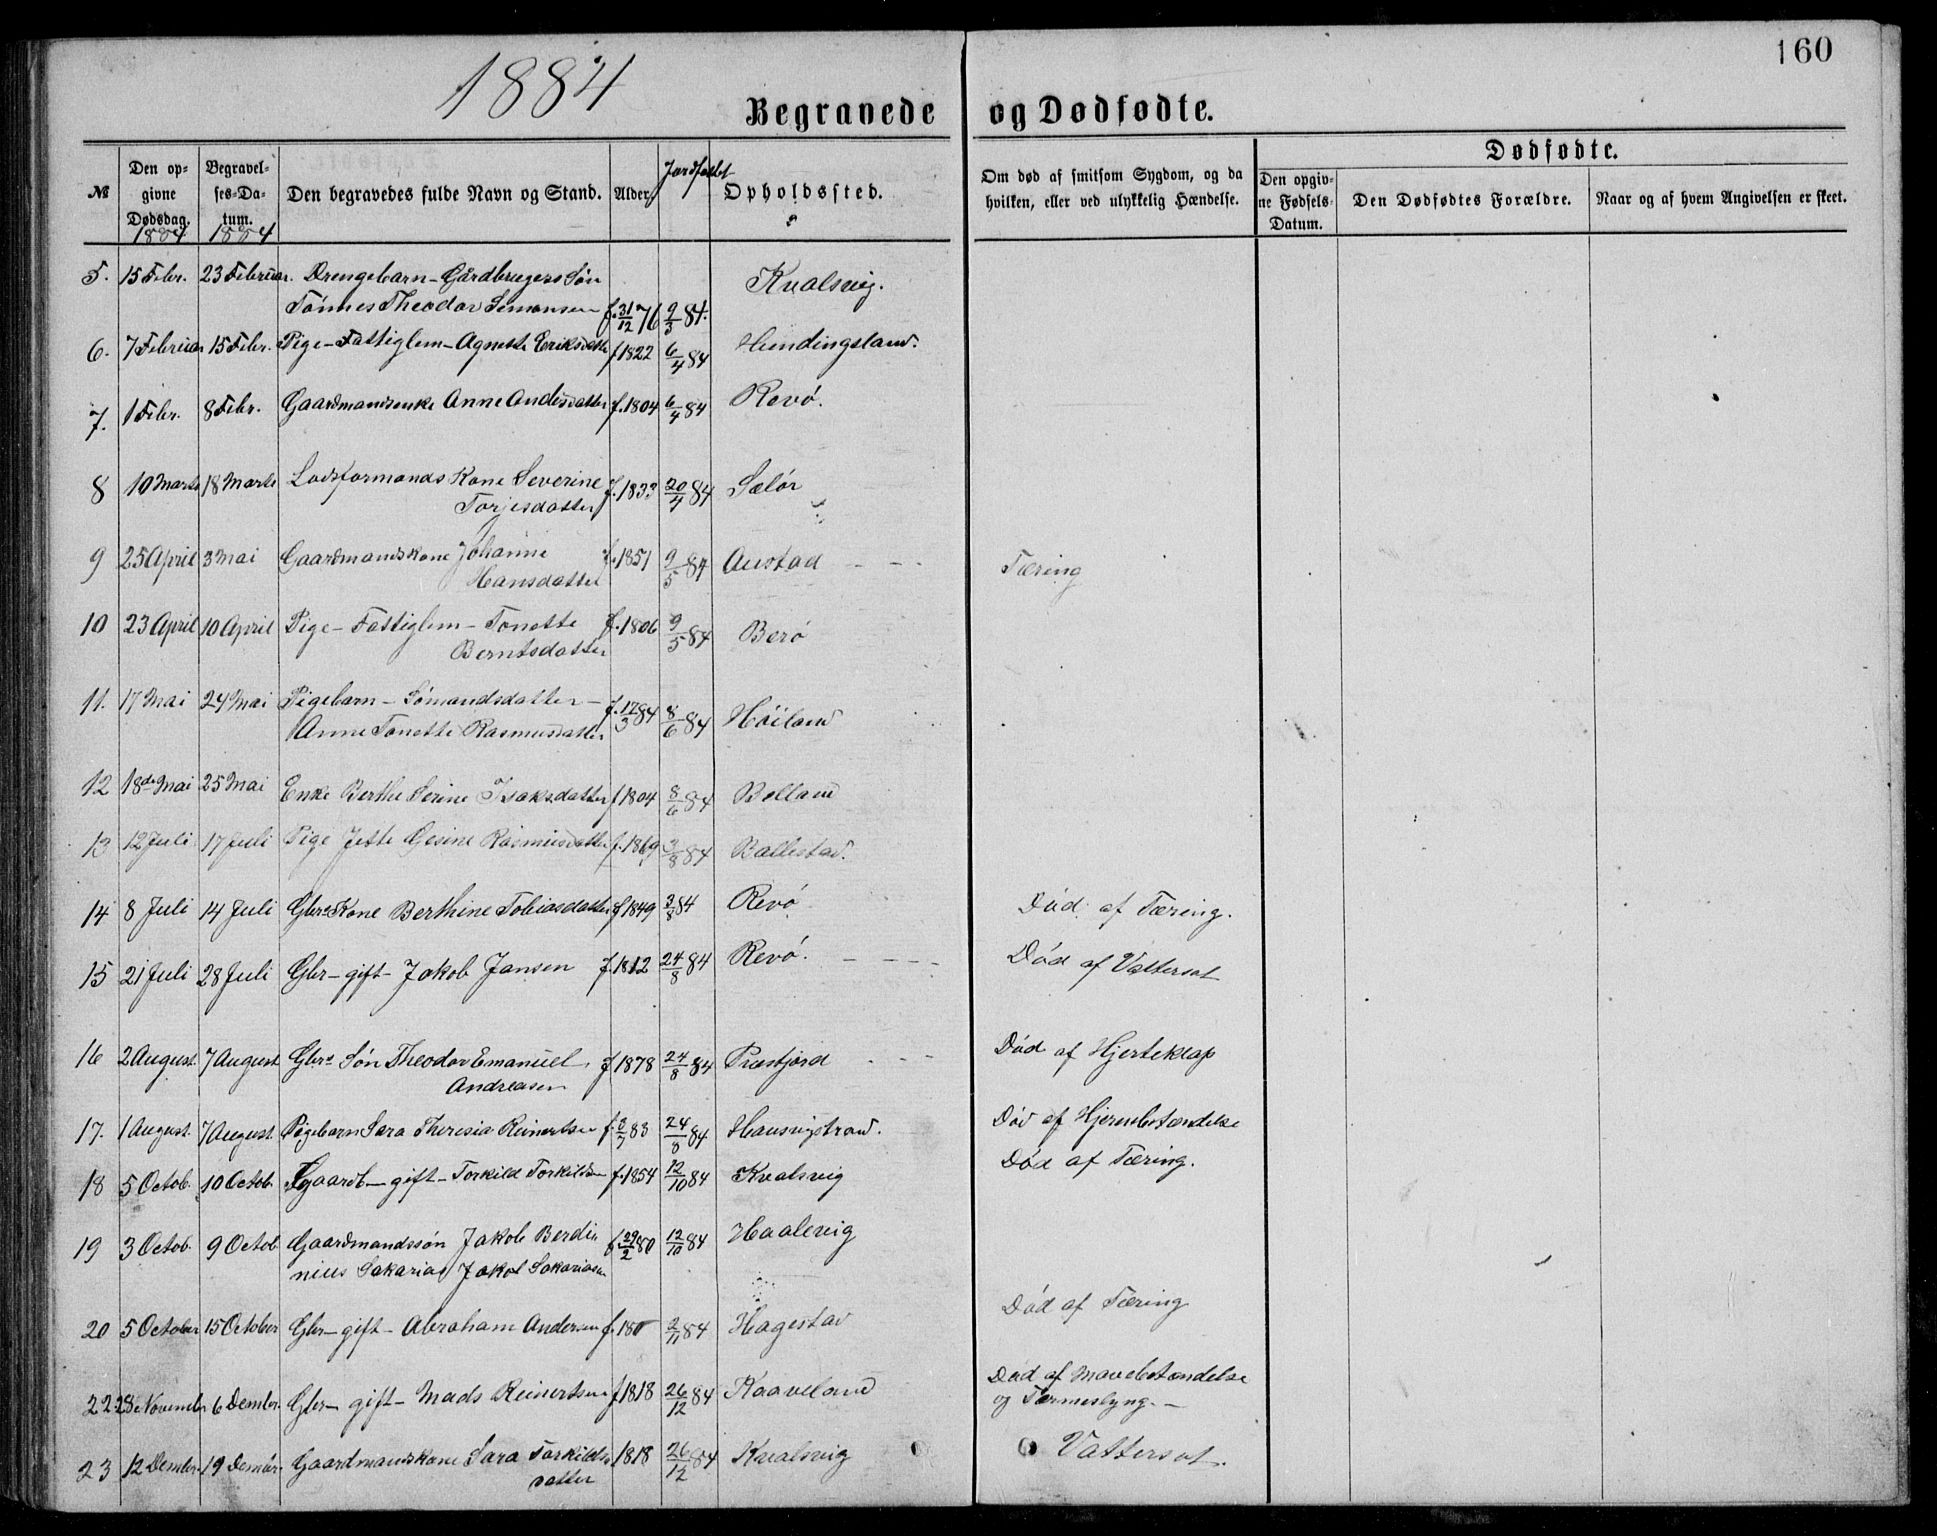 160
1884
Begravede og Dødfødte.
№
Den opgivne Dødsdag. 1884
Begravelses-Datum. 1884
Den begravedes fulde Navn og Stand.
Alder.
Jordfæstet
Opholdssted.
Om død af smitsom Sygdom, og da hvilken, eller ved ulykkelig Hændelse.
Dødfødte.
Den opgivne Fødsels-Datum.
Den Dødfødtes Forældre.
Naar og af hvem Angivelsen er skeet.
5. 15 Febr. 23 Februar. Drengebarn - Gårdbrugers Søn Kvalsvig.
Tønnes Theodor Simonsen f. 31/12 76 9/3 84.
6. 7 Februar 15 Febr. Pige - Fattiglem - Agnette Eriksdatter f 1822 6/4 84 Hundingsland.
7. 1 Febr. 8 Febr. Gaardmandsenke Anne Andersdatter f. 1804 6/4 84 Revø.
8 10 Marts 18 Marts Lodsformands Kone Severine f. 1833 20/4 84 Selør
Torjesdatter
9 25 April 3 Mai Gaardmandskone Johanne f. 1851 9/5 84 Austad - - - Tæring
Hansdatter
10 23 April 10 April Pige - Fattiglem - Tonette f. 1806 9/5 84 Berø
Berntsdatter
11. 17 Mai 24 Mai Pigebarn - Sømandsdatter - f. 17/3 84 8/6 84 Høiland
Anne Tonette Rasmusdatter
12 18de Mai 25 Mai Enke Berthe Serine Isaksdatter f 1804 8/6 84 Bolland
13 12 Juli 17 Juli Pige Jette Gesine Rasmusdatter f. 1869 3/8 84 Ballestad.
14 8 Juli 14 Juli Gbrs Kone Berthine Tobiasdatter f 1849 3/8 84 Revø Død af Tæring.
15 21 Juli 28 Juli Gbr - gift - Jakob Jansen f. 1812 24/8 84 Revø. - - - - Død af Vattersot
16 2 August. 7 August Gbrs Søn Theodor Emanuel f 1878 24/8 84 Præstjord - - - Død af Hjerteklap
Andreasen
17. 1 August. 7 August Pigebarn Sara Theresia Reinertsen 24/8 84 Død af Hjernebetændelse
18 5 Octob. 10 Octob. Gaardb - gift - Torkild Torkildsen f. 1854 12/10 84 Kvalsvig Død af Tæring.
19 3 Octob. 9 Octob Gaardmandssøn Jakob Berdi f 29/2 80 12/10 84 Haalevig
nius Sakarias Jakob Sakariasen
20 5 October 15 October Gbr - gift - Abraham Andersen 2/11 84 Hagestad Død af Tæring
22 28 November 6 Dember. Gbr - gift - Mads Reinertsen f 1818 26/12 84 Kaaveland Død af Mavebetændelse
og Tarmeslyng. -
23 12 Dember. 19 Dembr. Gaardmandskone Sara Torkilds 1818 26/12 84 Kvalsvig Vattersot.
datter